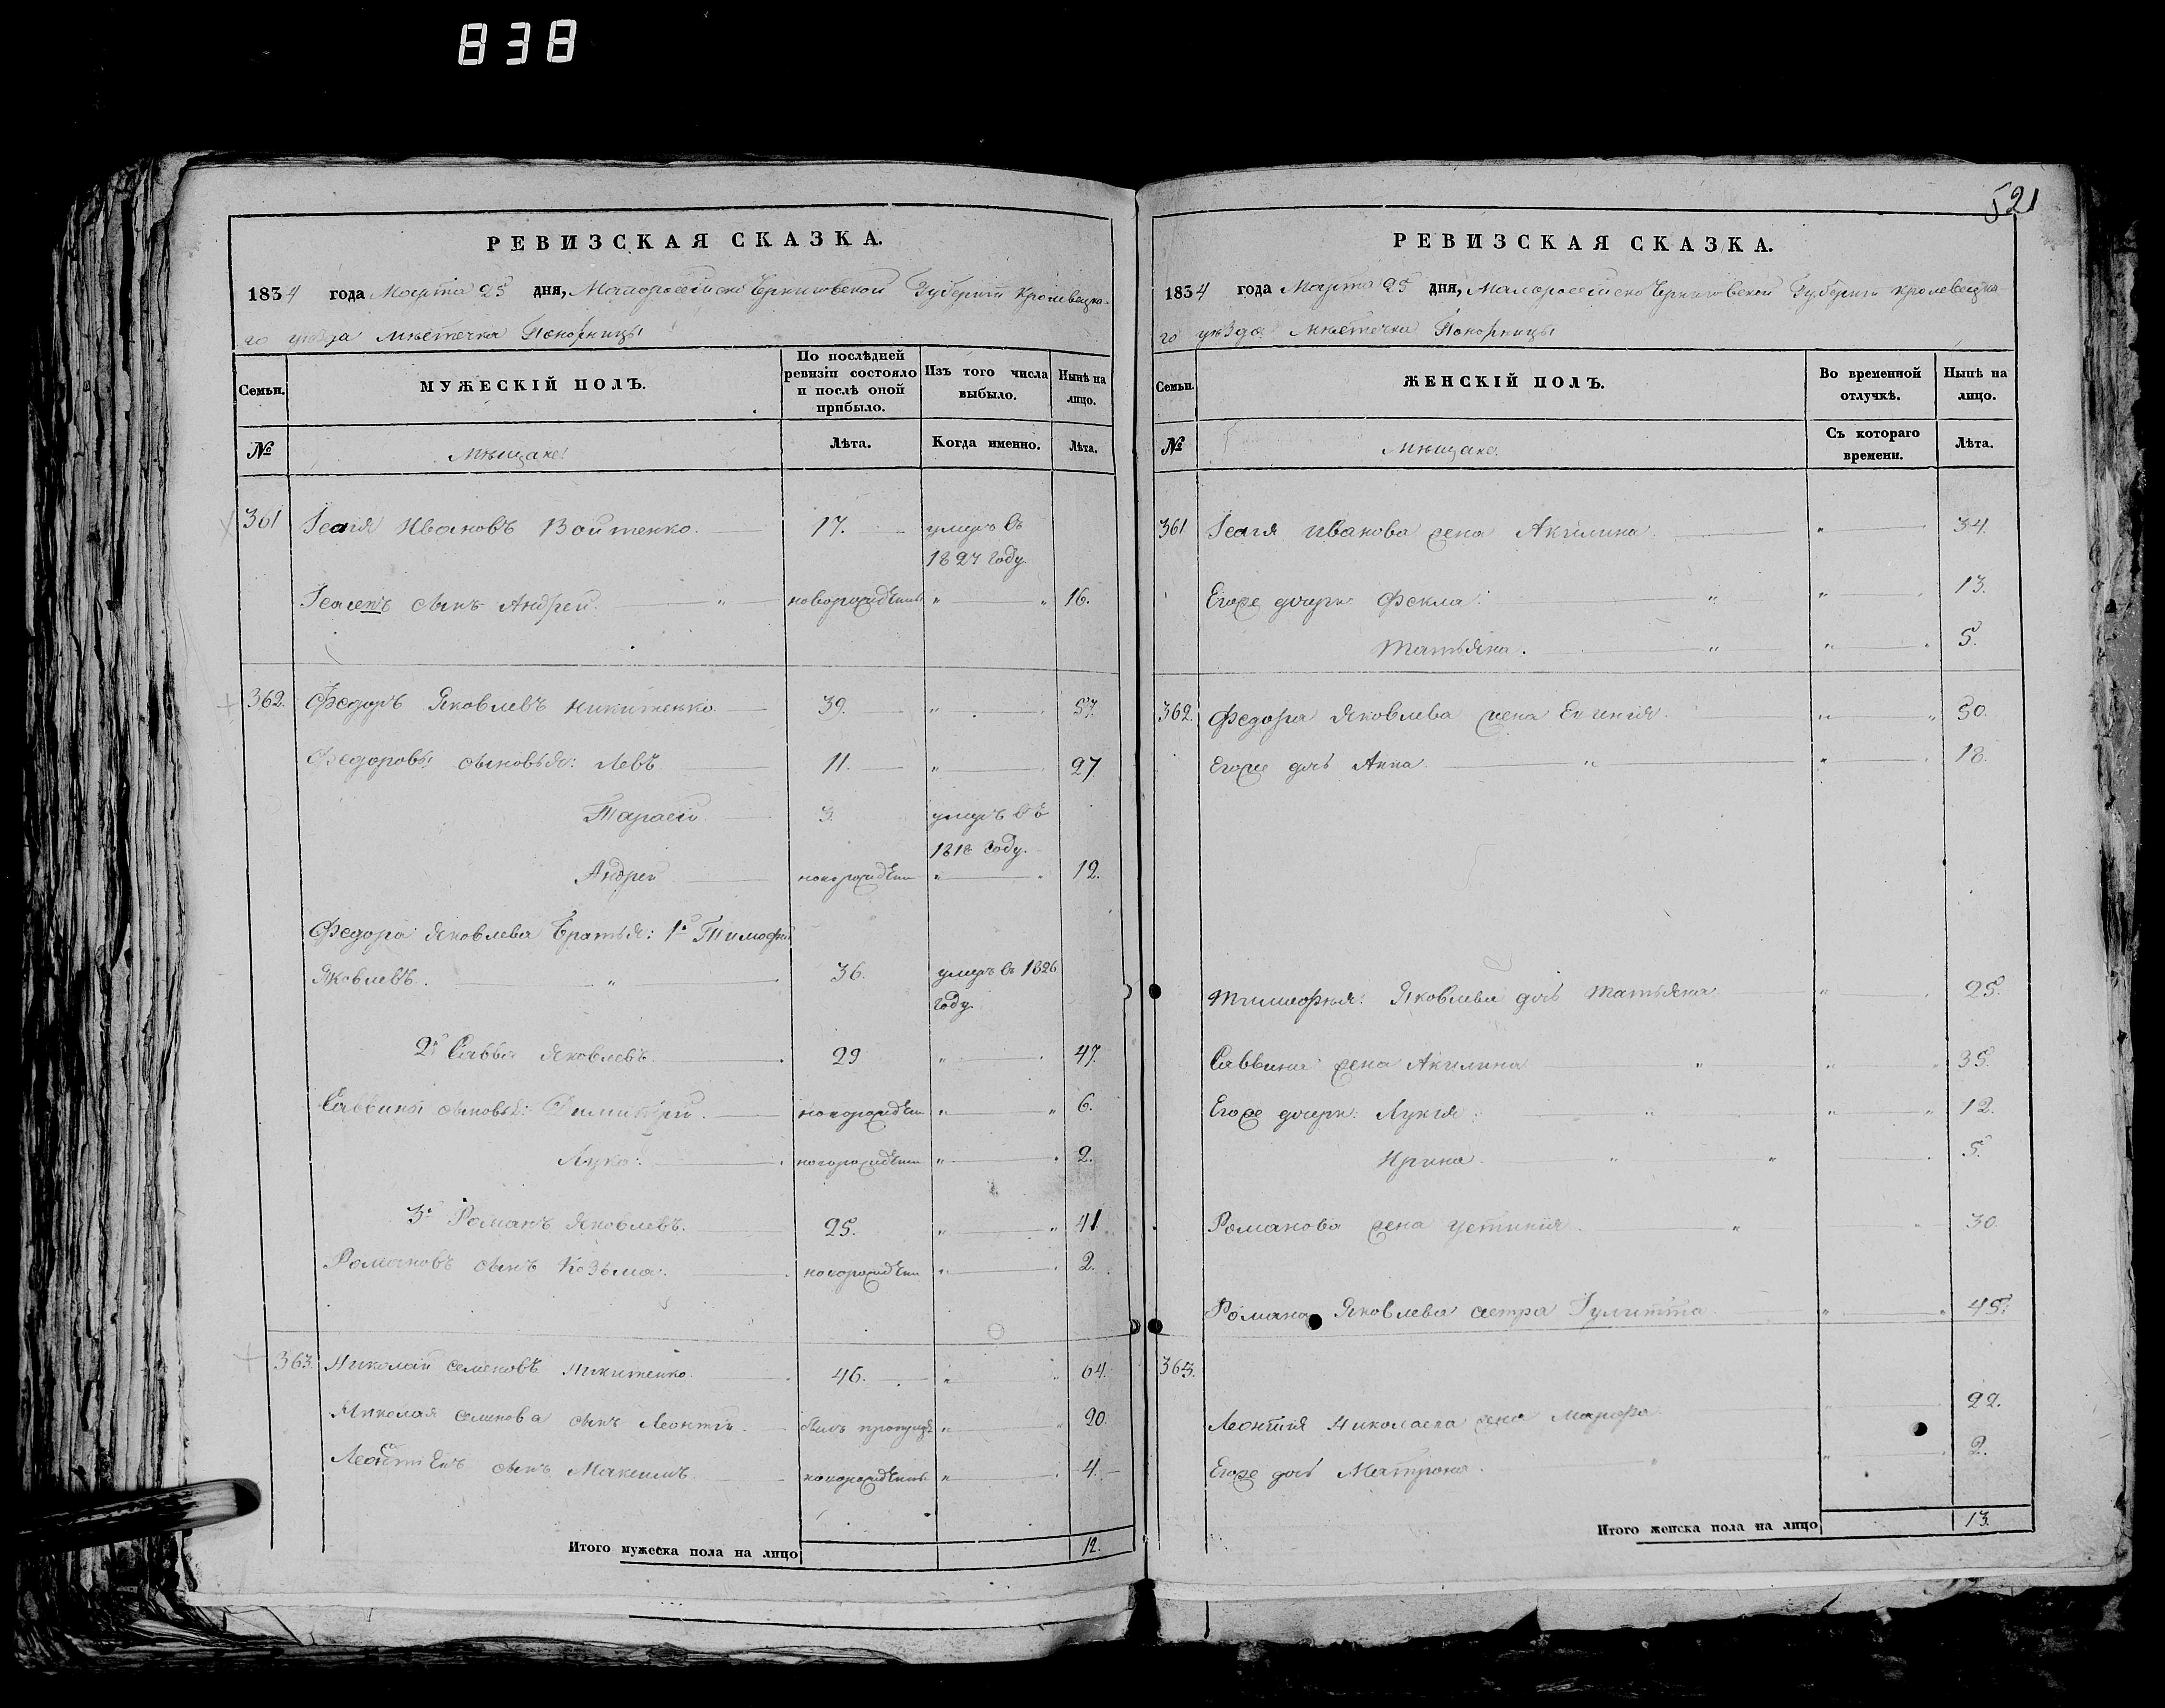 838
РЕВИЗСКАЯ СКАЗКА.
1834 года Марта 25 дня, Малороссійско Черниговской Губерніи Кролевецка-
го уезда Мѣстечка Понорницы
Семьи. МУЖЕСКІЙ ПОЛЪ. По послѣдней ревизіи состояло и послѣ оной прибыло. Изъ того числа выбыло. Нынѣ на лицо.
№ Мѣщане: Лѣта. Когда именно. Лѣта.
361 Исаія Ивановъ Войтенко. 17. умеръ въ
1827 году.
Исаіенъ сынъ Андрей. " новорожденъ " " 16.
362. Федоръ Яковлевъ Никитенко. 39. " 57.
Федоровы сыновья: Левъ 11. " 27
Тарасій 3. умеръ въ
1818 году.
Андрей новорожден " 12.
Федора Яковлева Братья: 1й Тимофей
Яковлевъ. " 36. умеръ въ 1826
году.
2й Савва Яковлевъ. 29 " 47.
Саввины сыновья: Димитрій. новорожден " " 6.
Лука. новорожден " 2.
3й Романъ Яковлевъ. 25. " " 41
Романовъ сынъ Козьма. новорожден " 2.
363. Николай Семеновъ Никитенко. 46. " 64.
Николая Семенова сынъ Леонтій. былъ пропущ " 20.
Леонтіевъ сынъ Максимъ. новорожденъ " 4.
Итого мужеска пола на лицо 12.
521
РЕВИЗСКАЯ СКАЗКА.
1834 года Марта 25 дня, Малороссійско Черниговской Губерніи Кролевецка-
го уѣзда Мѣстечка Понорницы
Семьи. ЖЕНСКІЙ ПОЛЪ. Во временной отлучкѣ. Нынѣ на лицо.
№ Мѣщане. Съ котораго времени. Лѣта.
361 Исаія Иванова жена Акилина " 34.
Егоже дочери Фекла: " " 13.
Татьяна. " " 5.
362. Федора Яковлева жена Евгенія. " " 50.
Егоже дочь Анна. " " 18.
Тимофея Яковлева дочь Татьяна " 25.
Саввина жена Акилина " " 35.
Егоже дочери: Лукія " " " 12.
Ирина " " 5.
Романова жена Устинія. " " 30.
Романа Яковлева сестра Гулитта " " 45.
363.
Леонтія Николаева жена Марфа " 22.
Егоже дочь Матрона. " " 2.
Итого женска пола на лицо 13.